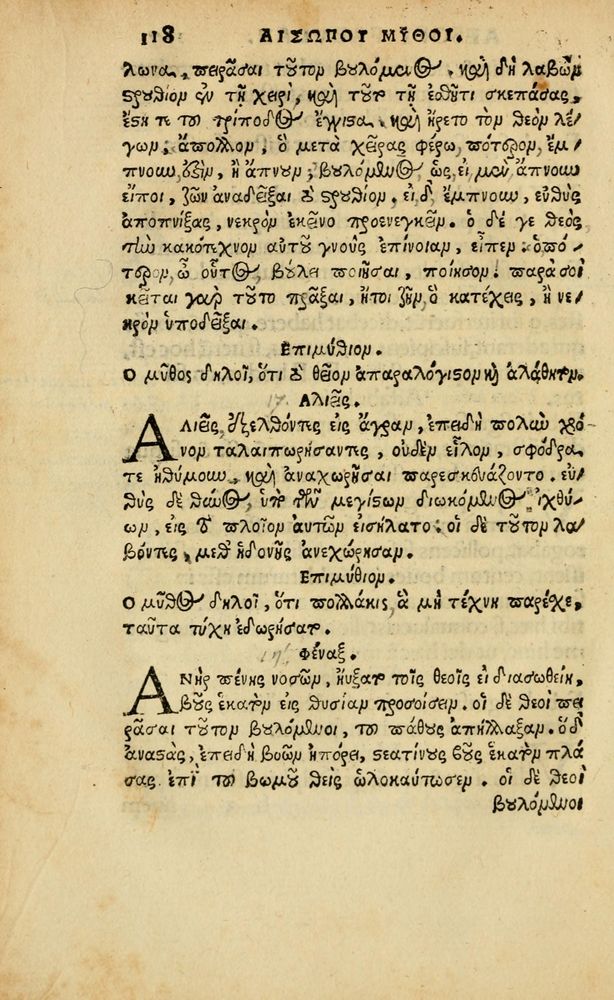 118 ΑΙΣΩΠΟΥ ΜΥΘΟΙ.
λωνα, πειρᾶσαι τοῦτον βουλόμενος. καὶ δὴ λαβὼν
στρουθίον ἐν τῇ χειρὶ, καὶ τοῦτο τῇ ἐσθῆτι σκεπάσας,
ἔστη τε τοῦ τρίποδος ἔγγιστα. καὶ ἤρετο τὸν θεὸν λέ/
γων, ἄπολλον, ὃ μετὰ χεῖρας φέρω, πότερον, ἔμ/
πνουν ἐστὶν, ἢ ἄπνουν; βουλόμενος ὡς, εἰ μὲν ἄπνουν
εἴποι, ζῶν ἀναδεῖξαι τὸ στρουθίον. εἰ δ' ἔμπνουν, εὐθὺς
ἀποπνίξας, νεκρὸν ἐκεῖνο προενεγκεῖν. ὁ δέ γε θεὸς
τὴν κακότεχνον αὐτοῦ γνοὺς ἐπίνοιαν, εἶπεν. ὁπό/
τερον, ὦ οὗτος, βούλει ποιῆσαι, ποίησον. παρὰ σοὶ
κεῖται γὰρ τοῦτο πρᾶξαι, ἤτοι ζῆν, ὃ κατέχεις, ἢ νε/
κρὸν ὑποδεῖξαι.
Επιμύθιον.
Ο μῦθος δηλοῖ, ὅτι τὸ θεῖον ἀπαραλόγιστον καὶ ἀλάθητον.
17. Αλιεῖς.
ΑΛιεῖς, ἐξελθόντες εἰς ἄγραν, ἐπειδὴ πολὺν χρό/
νον ταλαιπωρήσαντες, οὐδὲν εἷλον, σφόδρα
τε ἠθύμουν, καὶ ἀναχωρῆσαι παρεσκευάζοντο. εὐ/
θὺς δὲ θύννος, ὑπό του τῶν μεγίστων διωκόμενος ἰχθύ/
ων, εἰς τὸ πλοῖον αὐτῶν εἰσήλατο. οἱ δὲ τοῦτον λα/
βόντες, μεθ' ἡδονῆς ἀνεχώρησαν.
Επιμύθιον.
Ο μῦθος δηλοῖ, ὅτι πολλάκις, ἃ μὴ τέχνη παρέχε,
ταῦτα τύχη ἐδωρήσατ.
Φέναξ.
ΑΝὴρ πένης νοσῶν, ηὔξατο τοῖς θεοῖς εἰ διασωθείη,
βοῦς ἑκατὸν εἰς θυσίαν προσοίσειν. οἱ δὲ θεοὶ πει
ρᾶσαι τοῦτον βουλόμενοι, τοῦ πάθους ἀπήλλαξαν. ὁ δ'
ἀναστὰς, ἐπειδὴ βοῶν ἠπόρει, στεατίνους βοῦς ἑκατὸν πλά
σας ἐπὶ τοῦ βωμοῦ θεὶς ὡλοκαύτωσεν. οἱ δὲ θεοὶ
βουλόμενοι